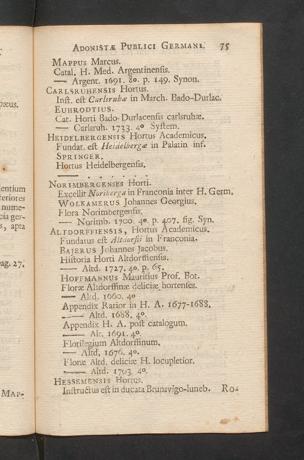 entium
eriores
nume-
s, apta
ag. 27.
MAP-
ADONISTÆ PUBLICI GERMANI. 75
MAPPUS Marcus.
Catal. H. Med. Argentinensis.
— Argent. 1691. 8o. p. 149. Synon.
CARLSRUHENSIS Hortus.
Inst. est Carlsruhæ in March. Bado-Durlac.
EUHRODTIUS.
Cat. Horti Bado-Durlacensis carlsruhæ.
— Carlsruh. 1733. 4o System.
HEIDELBERGENSIS Hortus Academicus.
Fundat. est Heidelbergæ in Palatin inf.
SPRINGER.
Hortus Heidelbergensis.
— . . . . . .
NORIMBERGENSES Horti.
Excellit Noribergæ in Franconia inter H. Germ.
WOLKAMERUS Johannes Georgius.
Flora Norimbergensis.
— Norimb. 1700. 4o. p. 407. fig. Syn.
ALTDORFFIENSIS, Hortus Academicus.
Fundatus est Altdorfii in Franconia.
BAJERUS Johannes Jacobus.
Historia Horti Altdorffiensis.
— Altd. 1727. 4o. p. 65.
HOFFMANNUS Mauritius Prof. Bot.
Floræ Altdorffinæ deliciæ hortenses.
— Altd. 1660. 4o
Appendix Rarior in H. A. 1677-1688.
— Altd. 1688. 4o.
Appendix H. A. post catalogum.
— Alt. 1691. 4o
Florilegium Altdorffinum.
— Altd. 1676. 4o.
Floræ Altd. deliciæ H. locupletior.
— Altd. 1703. 4o.
HESSEMENSIS Hortus.
Instructus est in ducatu Brunsvigo-luneb. Ro-